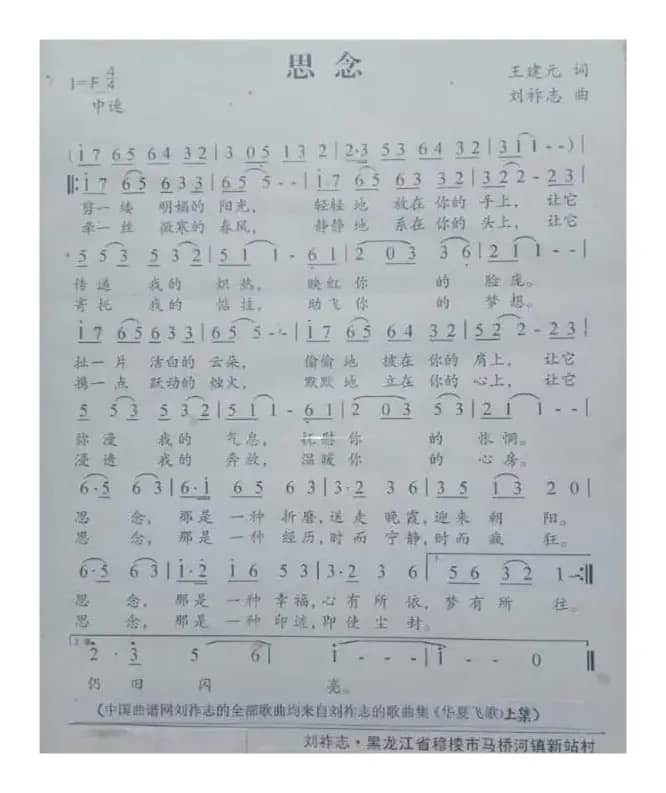 思念
1=F 4/4
王建元 词
中速
刘祚志 曲
(i 7 6 5 6 4 3 2 | 3 0 5 1 3 2 | 2·3 5 3 6 4 3 2 | 3 1 i - - ) |
‖: i 7 6 5 6 3 3 | 6 5 5 - - | i 7 6 5 6 3 3 2 | 3 2 2 - 2 3 |
剪一缕 明媚的 阳光, 轻轻地 放在你的 手上, 让它
牵一丝 微寒的 春风, 静静地 系在你的 头上, 让它
5 5 3 5 3 2 | 5 1 1 - 6 1 | 2 0 3 3 6 | 2 1 1 - - |
传递 我的 炽热, 映红你 的 脸庞。
寄托 我的 惦挂, 助飞你 的 梦想。
i 7 6 5 6 3 3 | 6 5 5 - - | i 7 6 5 6 4 3 2 | 5 2 2 - 2 3 |
扯一片 洁白的 云朵, 偷偷地 披在你的 肩上, 让它
携一点 跃动的 烛火, 默默地 立在你的 心上, 让它
5 5 3 5 3 2 | 5 1 1 - 6 1 | 2 0 3 5 3 | 2 1 1 - - |
弥漫 我的 气息, 抚慰你 的 怅惘。
浸透 我的 奔放, 温暖你 的 心房。
6·5 6 3 | 6·i 6 5 6 3 | 3·2 3 6 | 3 5 1 3 2 0 |
思 念, 那是 一种 折磨, 送走 晚霞, 迎来 朝 阳。
思 念, 那是 一种 经历, 时而 宁静, 时而 疯 狂。
6·5 6 3 | i·2 i 6 5 3 | 3·2 3 6 | 5 6 3 2 1 - :‖
思 念, 那是 一种 幸福, 心有 所 依, 梦有 所 往。
思 念, 那是 一种 印迹, 即使 尘 封。
2 · 3 5 6 | i - - - | i - - 0 ‖
仍 旧 闪 亮。
(中国曲谱网刘祚志的全部歌曲均来自刘祚志的歌曲集《华夏飞歌》上集)
刘祚志·黑龙江省穆棱市马桥河镇新站村